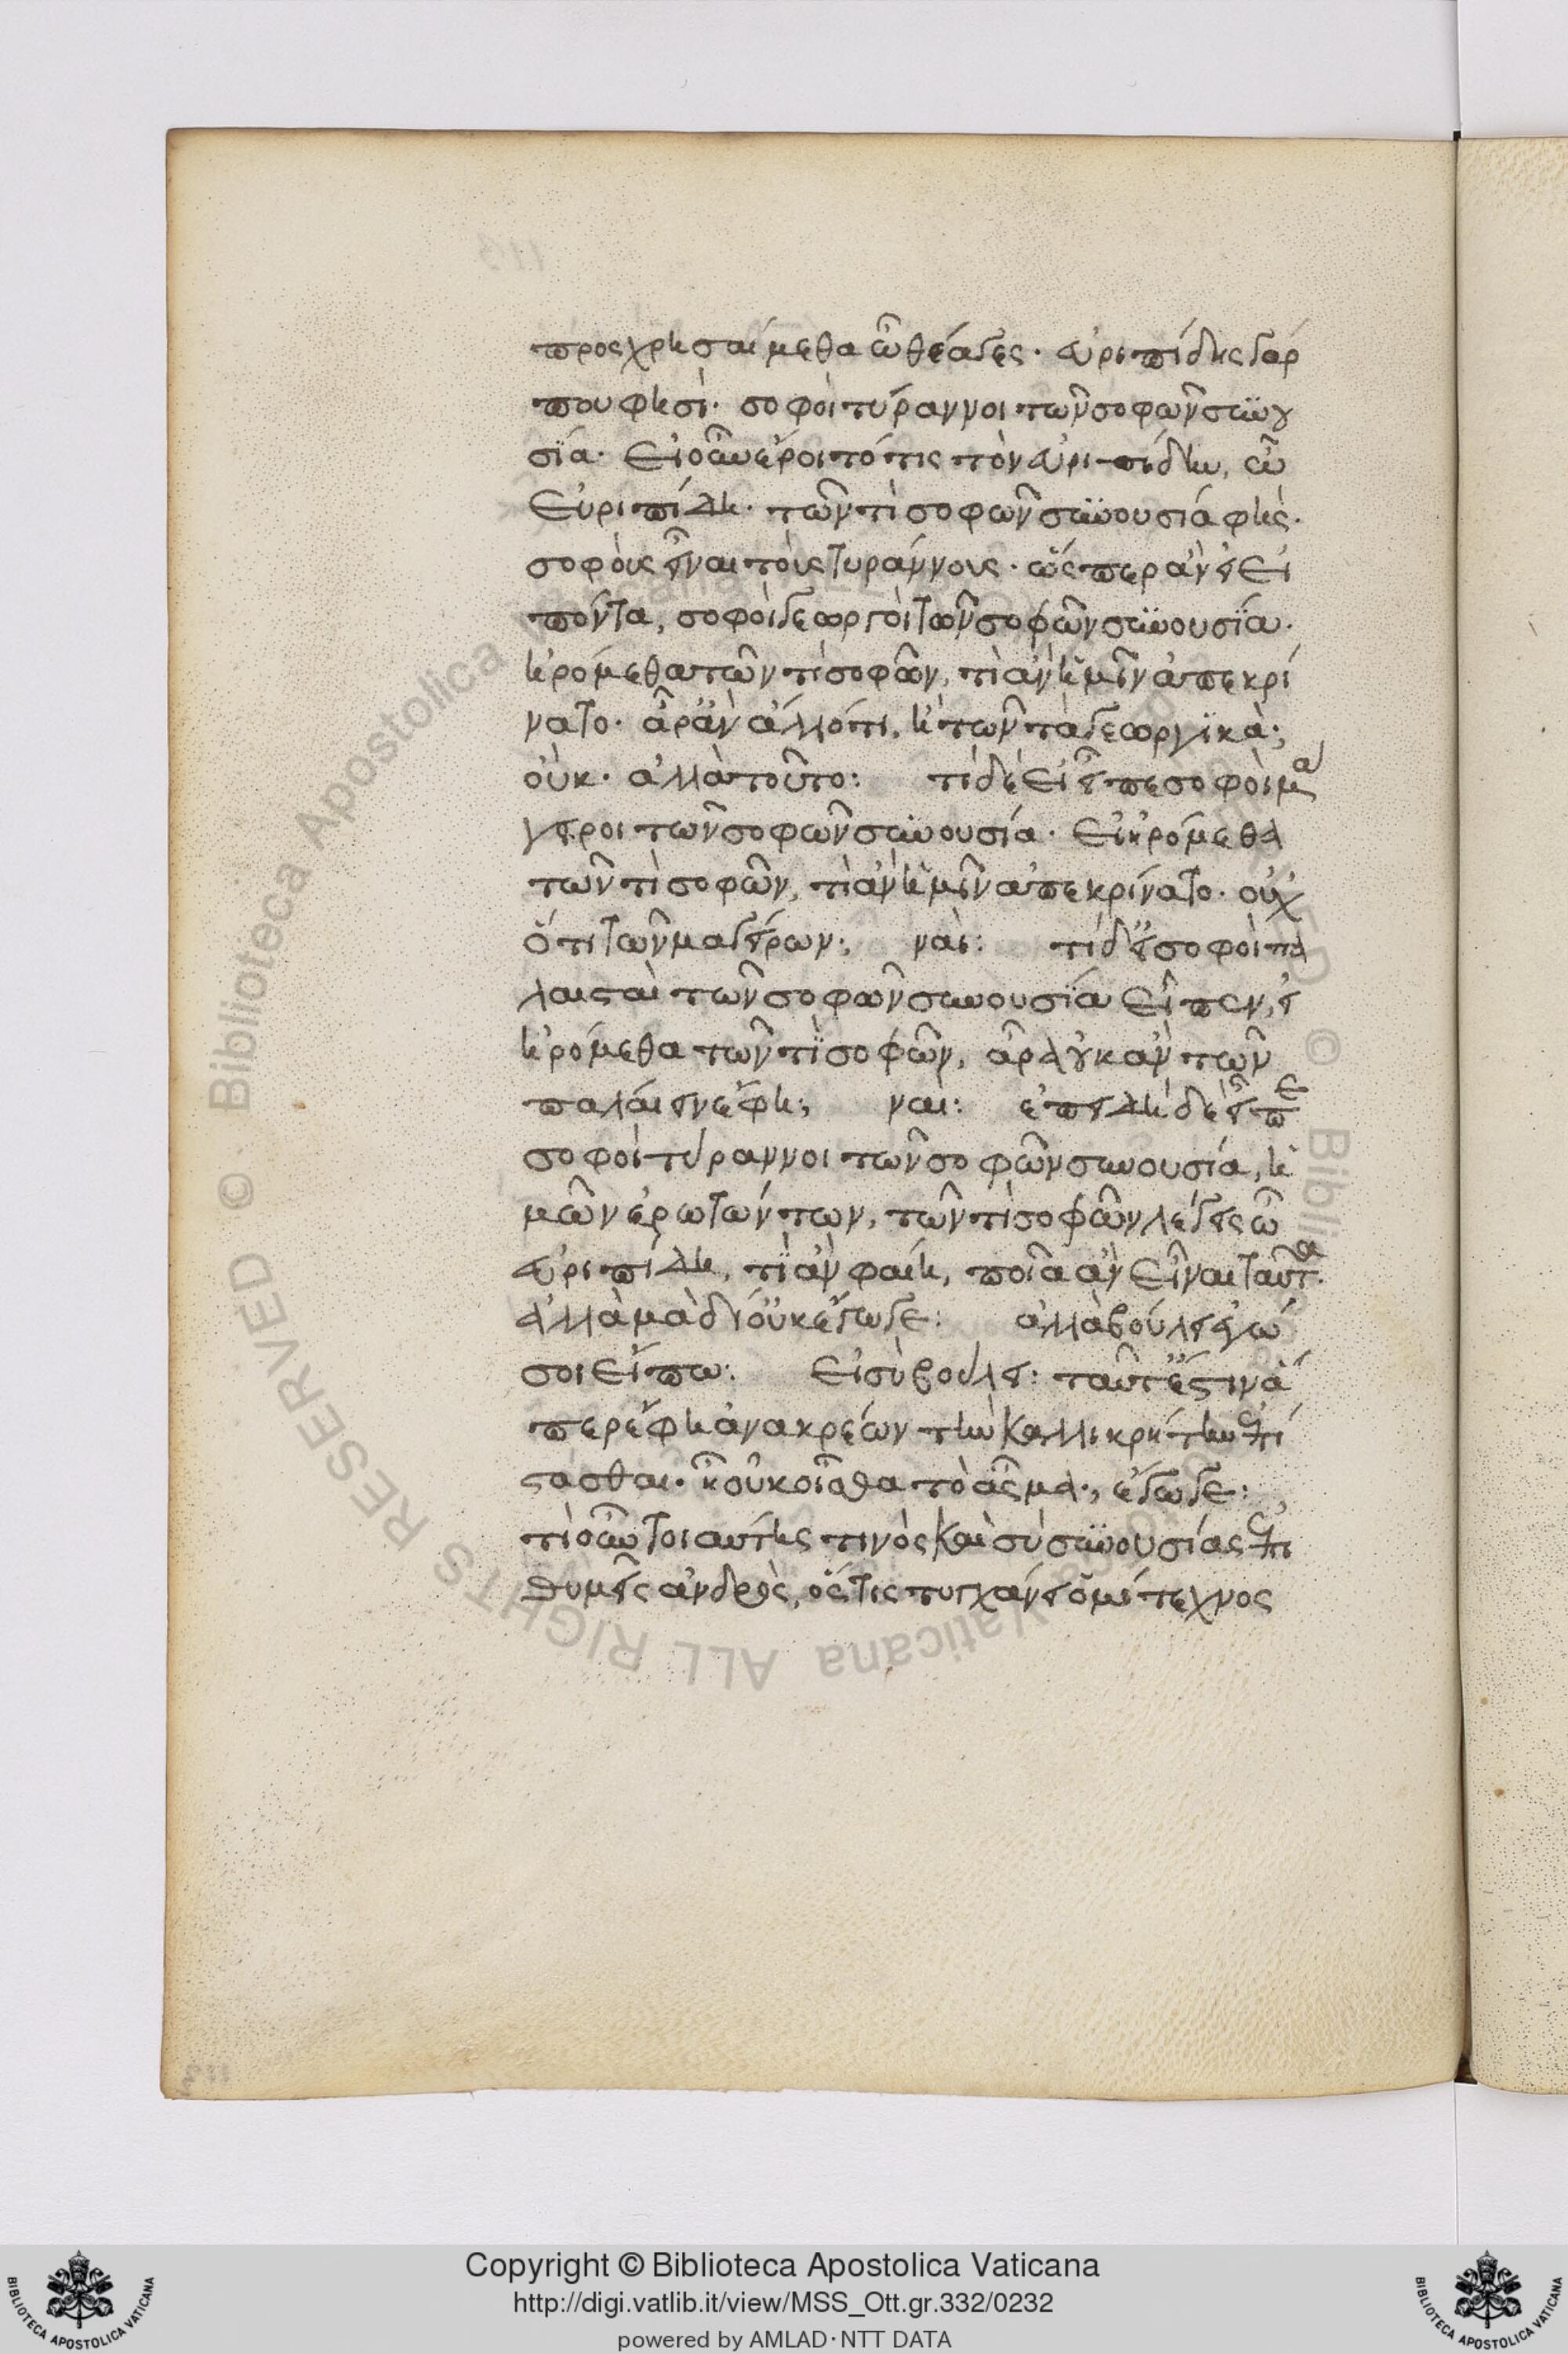 προσχρησαίμεθα ὦ θέαγες· εὐριπίδης γάρ
που φησὶ· σοφοὶ τύραννοι τῶν σοφῶν συνου
σία· εἰ οὖν ἔροιτό τις τὸν εὐριπίδην, ὦ
εὐριπίδη· τῶν τὶ σοφῶν συνουσία φῂς·
σοφοὺς εἶναι τοὺς τυράννους· ὥσπερ ἂν εἰ εἰ
πόντα, σοφοὶ γεωργοὶ τῶν σοφῶν συνουσία·
ἠρόμεθα τῶν τὶ σοφῶν, τὶ ἂν ἡμῖν ἀπεκρί
νατο· ἆρ' ἂν ἄλλό τι, ἢ τῶν τὰ γεωργικὰ;
οὐκ· ἀλλὰ τοῦτο: τί δὲ εἰ εἶπε σοφοὶ μά
γειροι τῶν σοφῶν συνουσία· εἰ ἠρόμεθα
τῶν τὶ σοφῶν, τὶ ἂν ἡμῖν ἀπεκρίνατο· οὐχ
ὅτι τῶν μαγείρων; ναι: τί δ' εἰ σοφοὶ πα
λαισταὶ τῶν σοφῶν συνουσία εἶπεν, εἰ
ἠρόμεθα τῶν τὶ σοφῶν, ἆρα οὐκ ἂν τῶν
παλαίειν ἔφη; ναι: ἐπειδὴ δὲ εἶπε
σοφοὶ τύραννοι τῶν σοφῶν συνουσία, ἡ
μῶν ἐρωτώντων, τῶν τὶ σοφῶν λέγεις ὦ
εὐριπίδη, τὶ ἂν φαίη, ποῖα ἂν εἶναι ταῦτα·
ἀλλὰ μὰ δί' οὐκ ἔγωγε: ἀλλὰ βούλει ἐγώ
σοι εἴπω: εἰ σὺ βούλει: ταῦτ' ἔστιν ἅ
περ ἔφη ἀνακρέων τὴν καλλικρίτην ἐπί
στασθαι· ἢ οὐκ οἶσθα τὸ ἆσμα; ἔγωγε:
τὶ οὖν τοιαύτης τινὸς καὶ σὺ συνουσίας ἐπι
θυμεῖς ἀνδρὸς, ὅστις τυγχάνει ὁμότεχνος
Copyright © Biblioteca Apostolica Vaticana
http://digi.vatlib.it/view/MSS_Ott.gr.332/0232
powered by AMLAD·NTT DATA